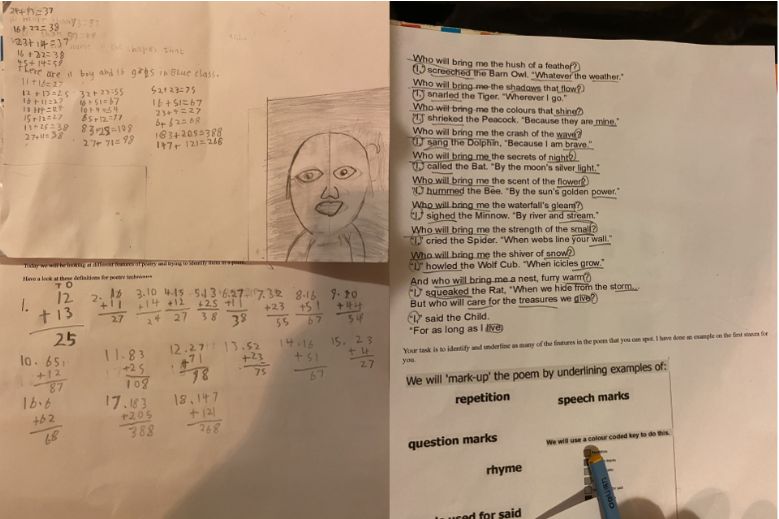 24+13=37
16+22=38
23+14=37
16+22=38
45+14=59
There are 11 boy and 16 girls in Blue class.
11+16=27
12+13=25
16+11=27
15+12=27
13+25=38
27+11=38
32+23=55
16+51=67
65+12=77
83+25=108
27+71=98
52+23=75
16+51=67
23+4=27
6+62=68
183+205=388
147+121=268
Today we will be looking at different features of poetry and trying to identify them in a poem.
Have a look at these definitions for poetry techniques
TO
1. 12
+13
25
2. 16
+11
27
3. 10
+14
24
4. 15
+12
27
5. 13
+25
38
6. 27
+11
38
7. 32
+23
55
8. 16
+51
67
9.
+44
54
10. 65
+12
87
11. 83
+25
108
12. 27
+71
98
13. 52
+23
75
14. 16
+51
67
15. 23
+4
27
16. 6
+62
68
17. 183
+205
388
18. 147
+121
268
Who will bring me the hush of a feather?
"I," screeched the Barn Owl. "Whatever the weather."
Who will bring me the shadows that flow?
"I," snarled the Tiger. "Wherever I go."
Who will bring me the colours that shine?
"I," shrieked the Peacock. "Because they are mine."
Who will bring me the crash of the wave?
"I," sang the Dolphin, "Because I am brave."
Who will bring me the secrets of night?
"I," called the Bat. "By the moon's silver light."
Who will bring me the scent of the flower?
"I," hummed the Bee. "By the sun's golden power."
Who will bring me the waterfall's gleam?
"I," sighed the Minnow. "By river and stream."
Who will bring me the strength of the small?
"I," cried the Spider. "When webs line your wall."
Who will bring me the shiver of snow?
"I," howled the Wolf Cub. "When icicles grow."
And who will bring me a nest, furry warm?
"I," squeaked the Rat, "When we hide from the storm."
But who will care for the treasures we give?
"I," said the Child.
"For as long as I live."
Your task is to identify and underline as many of the features in the poem that you can spot. I have done an example on the first stanza for
you.
We will 'mark-up' the poem by underlining examples of:
repetition speech marks
question marks We will use a colour coded key to do this.
rhyme
used for said